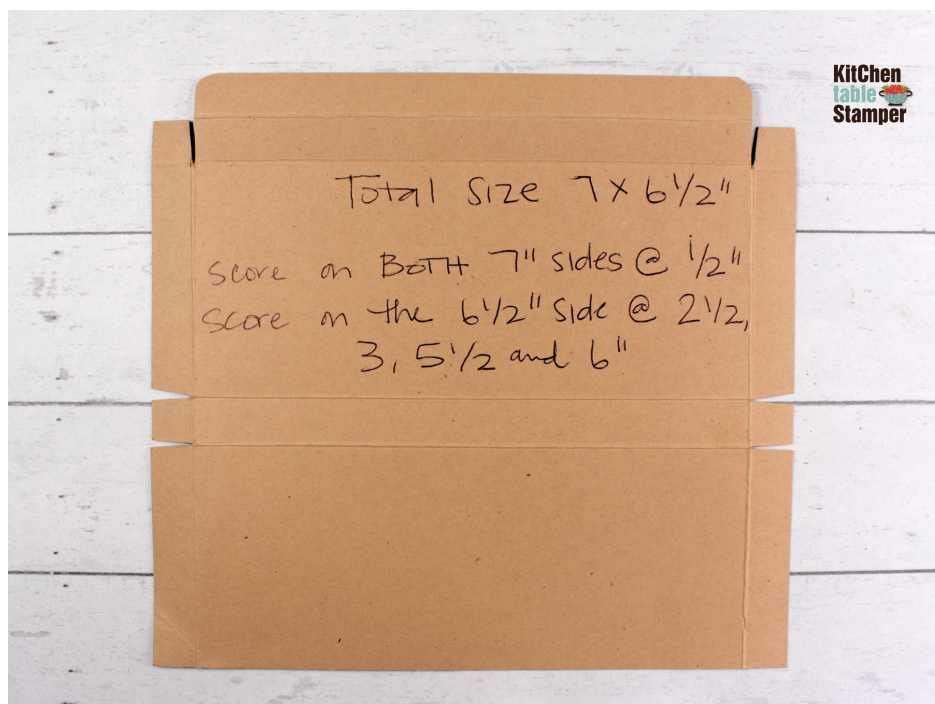 KitChen
table
Stamper
Total Size 7 x 6 1/2"
score on BOTH 7" sides @ 1/2"
score on the 6 1/2" side @ 2 1/2,
3, 5 1/2 and 6"